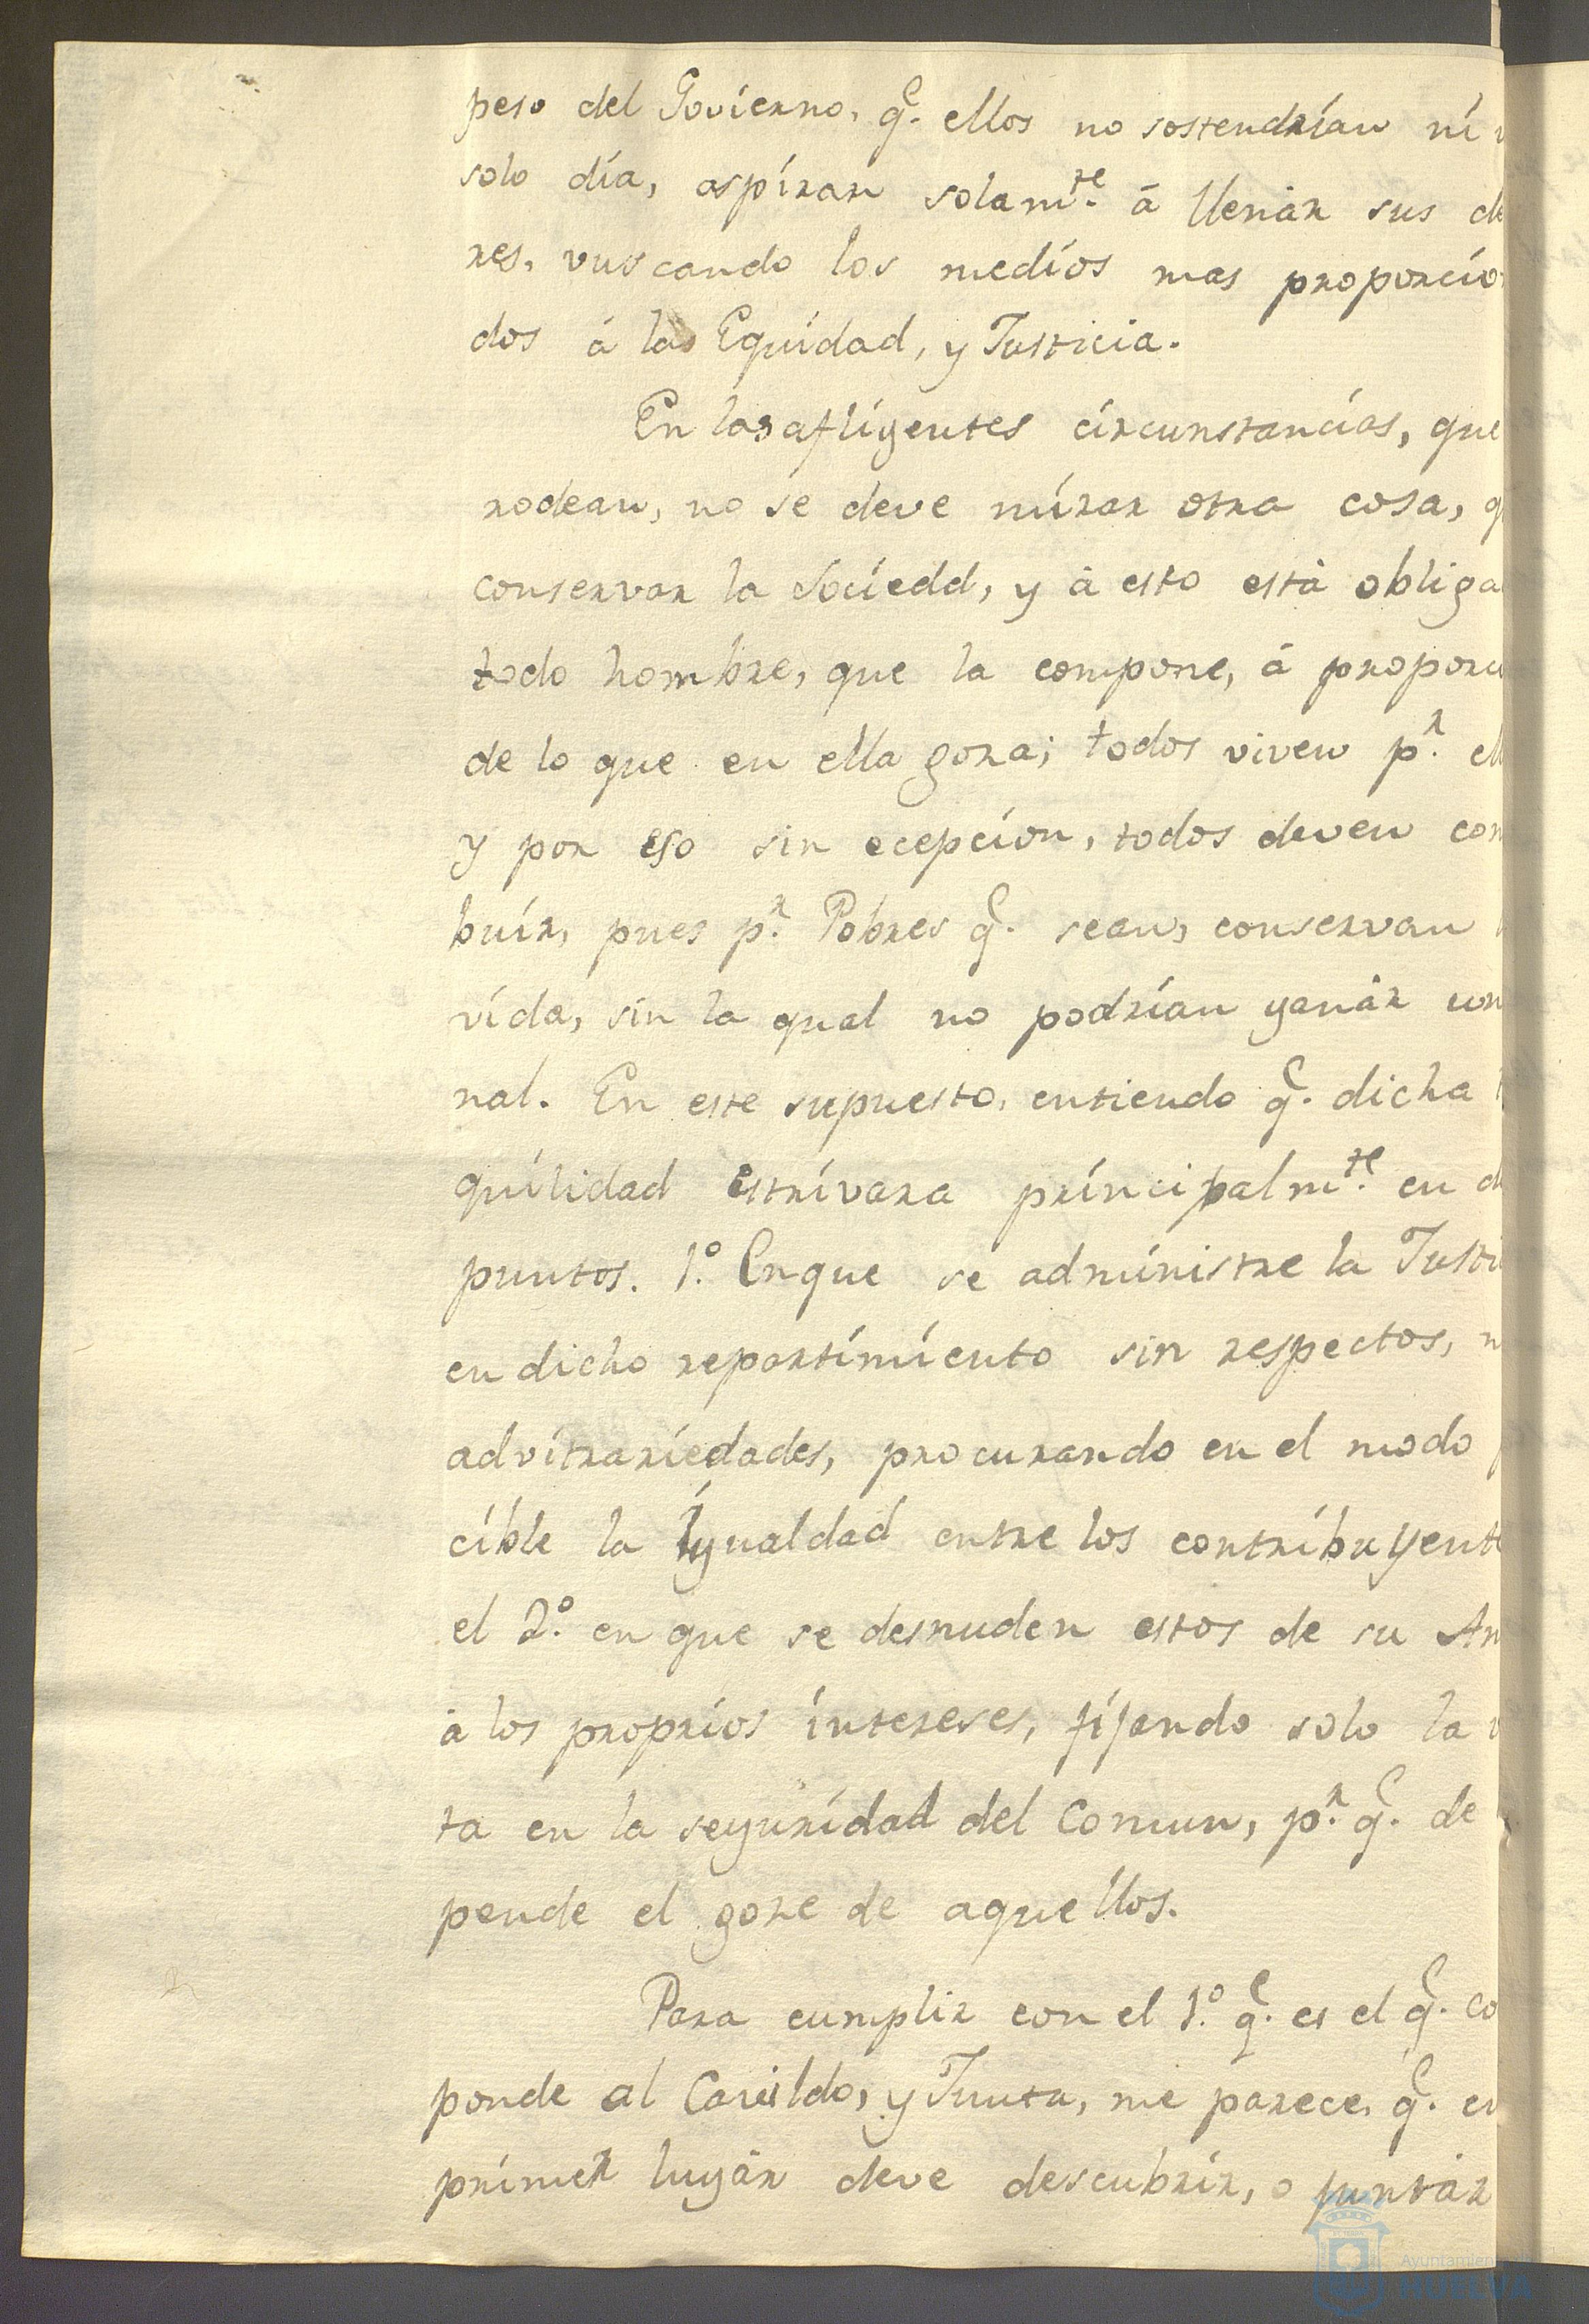 peso del Govierno, q.e ellos no sostendrían ní
solo día, aspíran solam.te á llenár sus de
res, vuscando los medíos mas proporcío
dos á la Equídad, y Justicia.
En las afligentes círcunstancías, que
rodean, no se deve mírar otra cosa, q
conservar la Sociedd, y á esto está obliga
todo hombre, que la compone, á proporci
de lo que en ella goza; todos viven p.r ell
y por eso sin ecepcíon, todos deven con
buír, pues p.r Pobres q.e sean, conservan
vída, sín la qual no podrían ganár
nal. En este supuesto, entiendo q.e dicha
quílidad estrívara príncipalm.te en d
puntos. 1.o Enque se admínistre la Justi
en dicho repartímíento sin respectos, n
advitraríedades, procurando en el modo
cíble la Ygualdad entre los contríbuyente
el 2.o en que se desnuden estos de su Am
á los propríos íntereses, fijando solo la v
ta en la segurídad del Comun, p.r q.e de
pende el goze de aquellos.
Para cumplir con el 1.o q.e es el q.e co
ponde al Cavildo, y Junta, me parece, q.e en
prímer lugár deve descubrír, o juntár
Ayuntamien
HUELVA